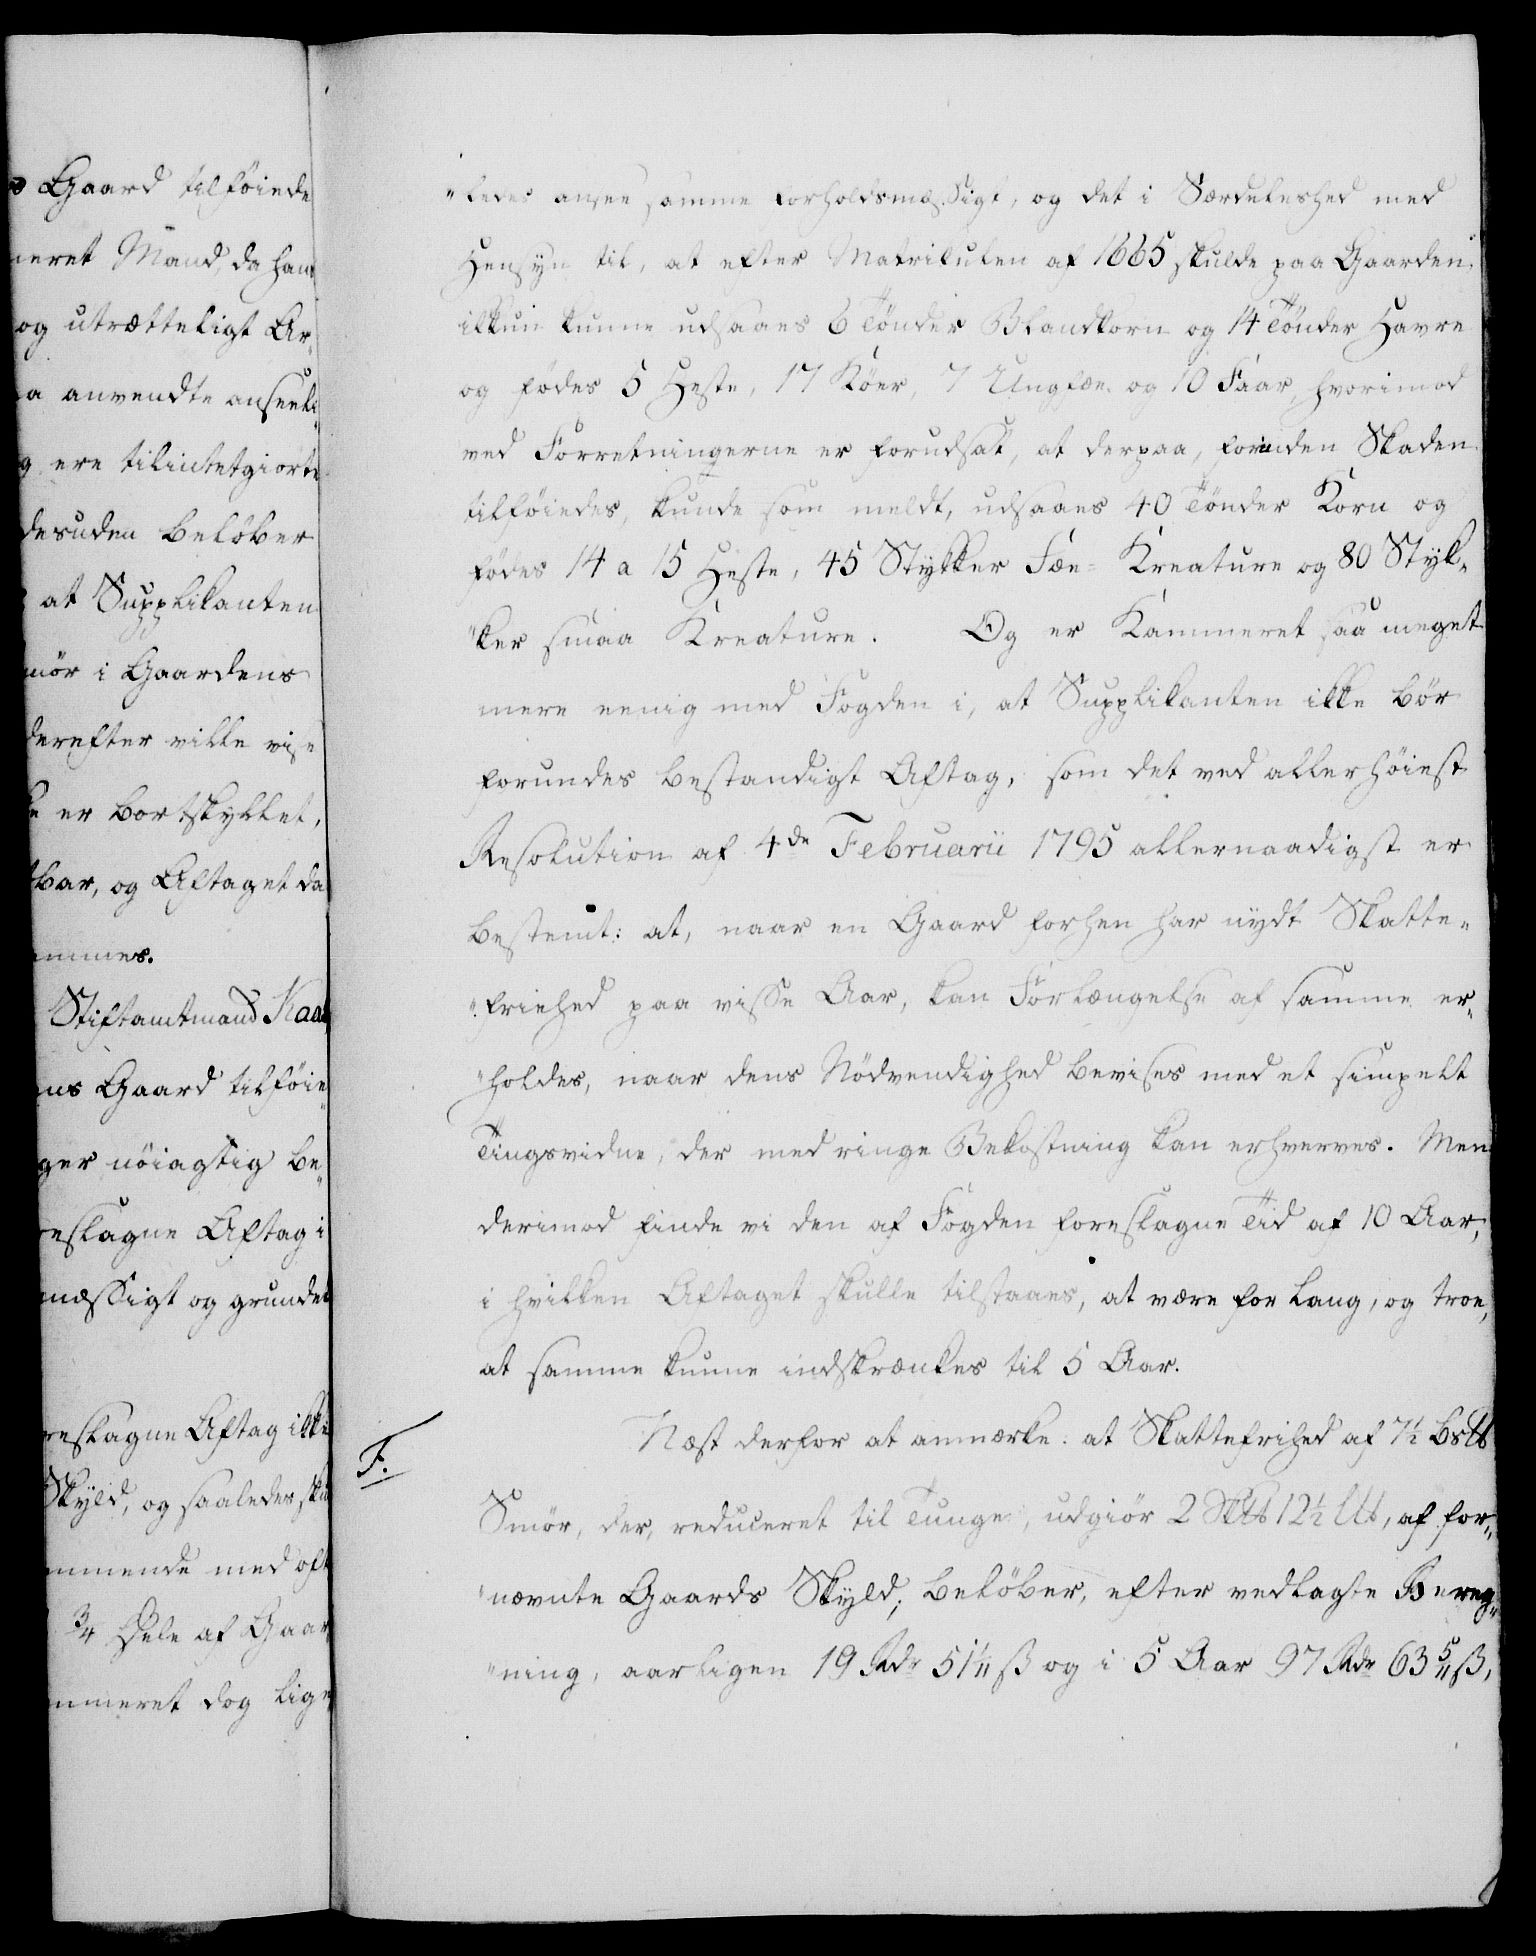 Gaard tilföiede
neret Mand, da han
og utrætteligt Ar„
a anvendte anseeli„
g ere tilintetgiorte
desuden belöber
at Supplikanten
mör i Gaardens
derefter ville vise
er bortskyllet,
bar, og Aftaget da
ommes.
Stiftamtmand Kaas,
ns Gaard tilföie„
ger nöiagtig be„
reslagne Aftag i
mæssigt og grundet
reslagne Aftag ikke
Skyld, og saaledes sku
mmende med oft
3/4 Dele af Gaar„
mmeret dog lige„
„ledes ansee samme forholdsmæssigt, og det i Særdeleshed med
Hensyn til, at efter Matrikulen af 1665 skulde paa Gaarden
ikkun kunne udsaaes 6 Tönder Blandkorn og 14 Tönder Havre
og födes 5 Heste, 17 Köer, 7 Ungfæe og 10 Faar, hvorimod
ved Forretningerne er forudsat, at derpaa, forinden Skaden
tilföiedes, kunde som meldt, udsaaes 40 Tönder Korn og
födes 14 a 15 Heste, 45 Stykker Fæe= Kreature og 80 Styk„
„ker smaa Kreature. Og er Kammeret saa meget
mere eenig med Fogden i, at Supplikanten ikke bör
forundes bestandigt Aftag, som det ved allerhöiest
Resolution af 4de Februarii 1795 allernaadigst er
bestemt: at, naar en Gaard forhen har nydt Skatte„
„friehed paa visse Aar, kan Forlængelse af samme er„
„holdes, naar dens Nödvendighed bevises med et simpelt
Tingsvidne, der med ringe Bekostning kan erhverves. Men
derimod finde vi den af Fogden foreslagne Tid af 10 Aar,
i hvilken Aftaget skulle tilstaaes, at være for lang, og troe,
at samme kunne indskrænkes til 5 Aar.
F.
Næst derfor at anmærke: at Skattefrihed af 7½ Bslb
Smör, der, reduceret til Tunge, udgiör 2 Sklb 12½ Llb, af for„
„nævnte Gaards Skyld, belöber, efter vedlagte Bereg„
„ning, aarligen 19 Rdr 51 1/11 ß og i 5 Aar 97 Rdr 63 5/11 ß,